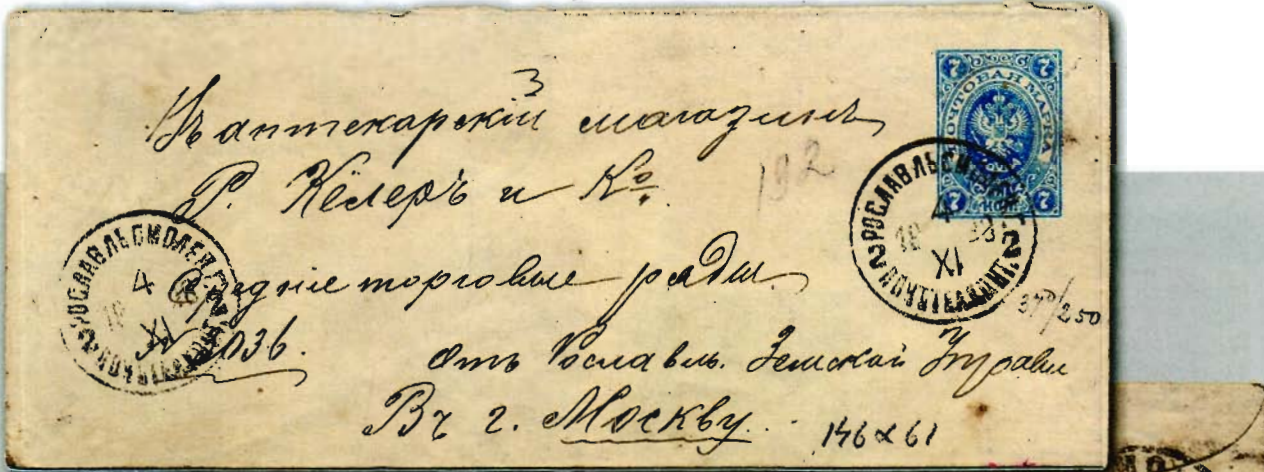 3
Въ аптекарскій магазинъ
Р. Кёлеръ и Ко.
192
Средніе торговые ряды
№ 1036.
Отъ Рославль. Земской Управы
Въ г. Москву.
146 x 61
37/250
7 7
ПОЧТОВАЯ МАРКА
7 КОП. 7
РОСЛАВЛЬ СМОЛЕН. Г.
4
XI
2
РОСЛАВЛЬ СМОЛЕН. Г.
4
18 98
XI
2